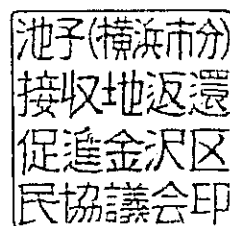 池子(横浜市分)
接収地返還
促進金沢区
民協議会印